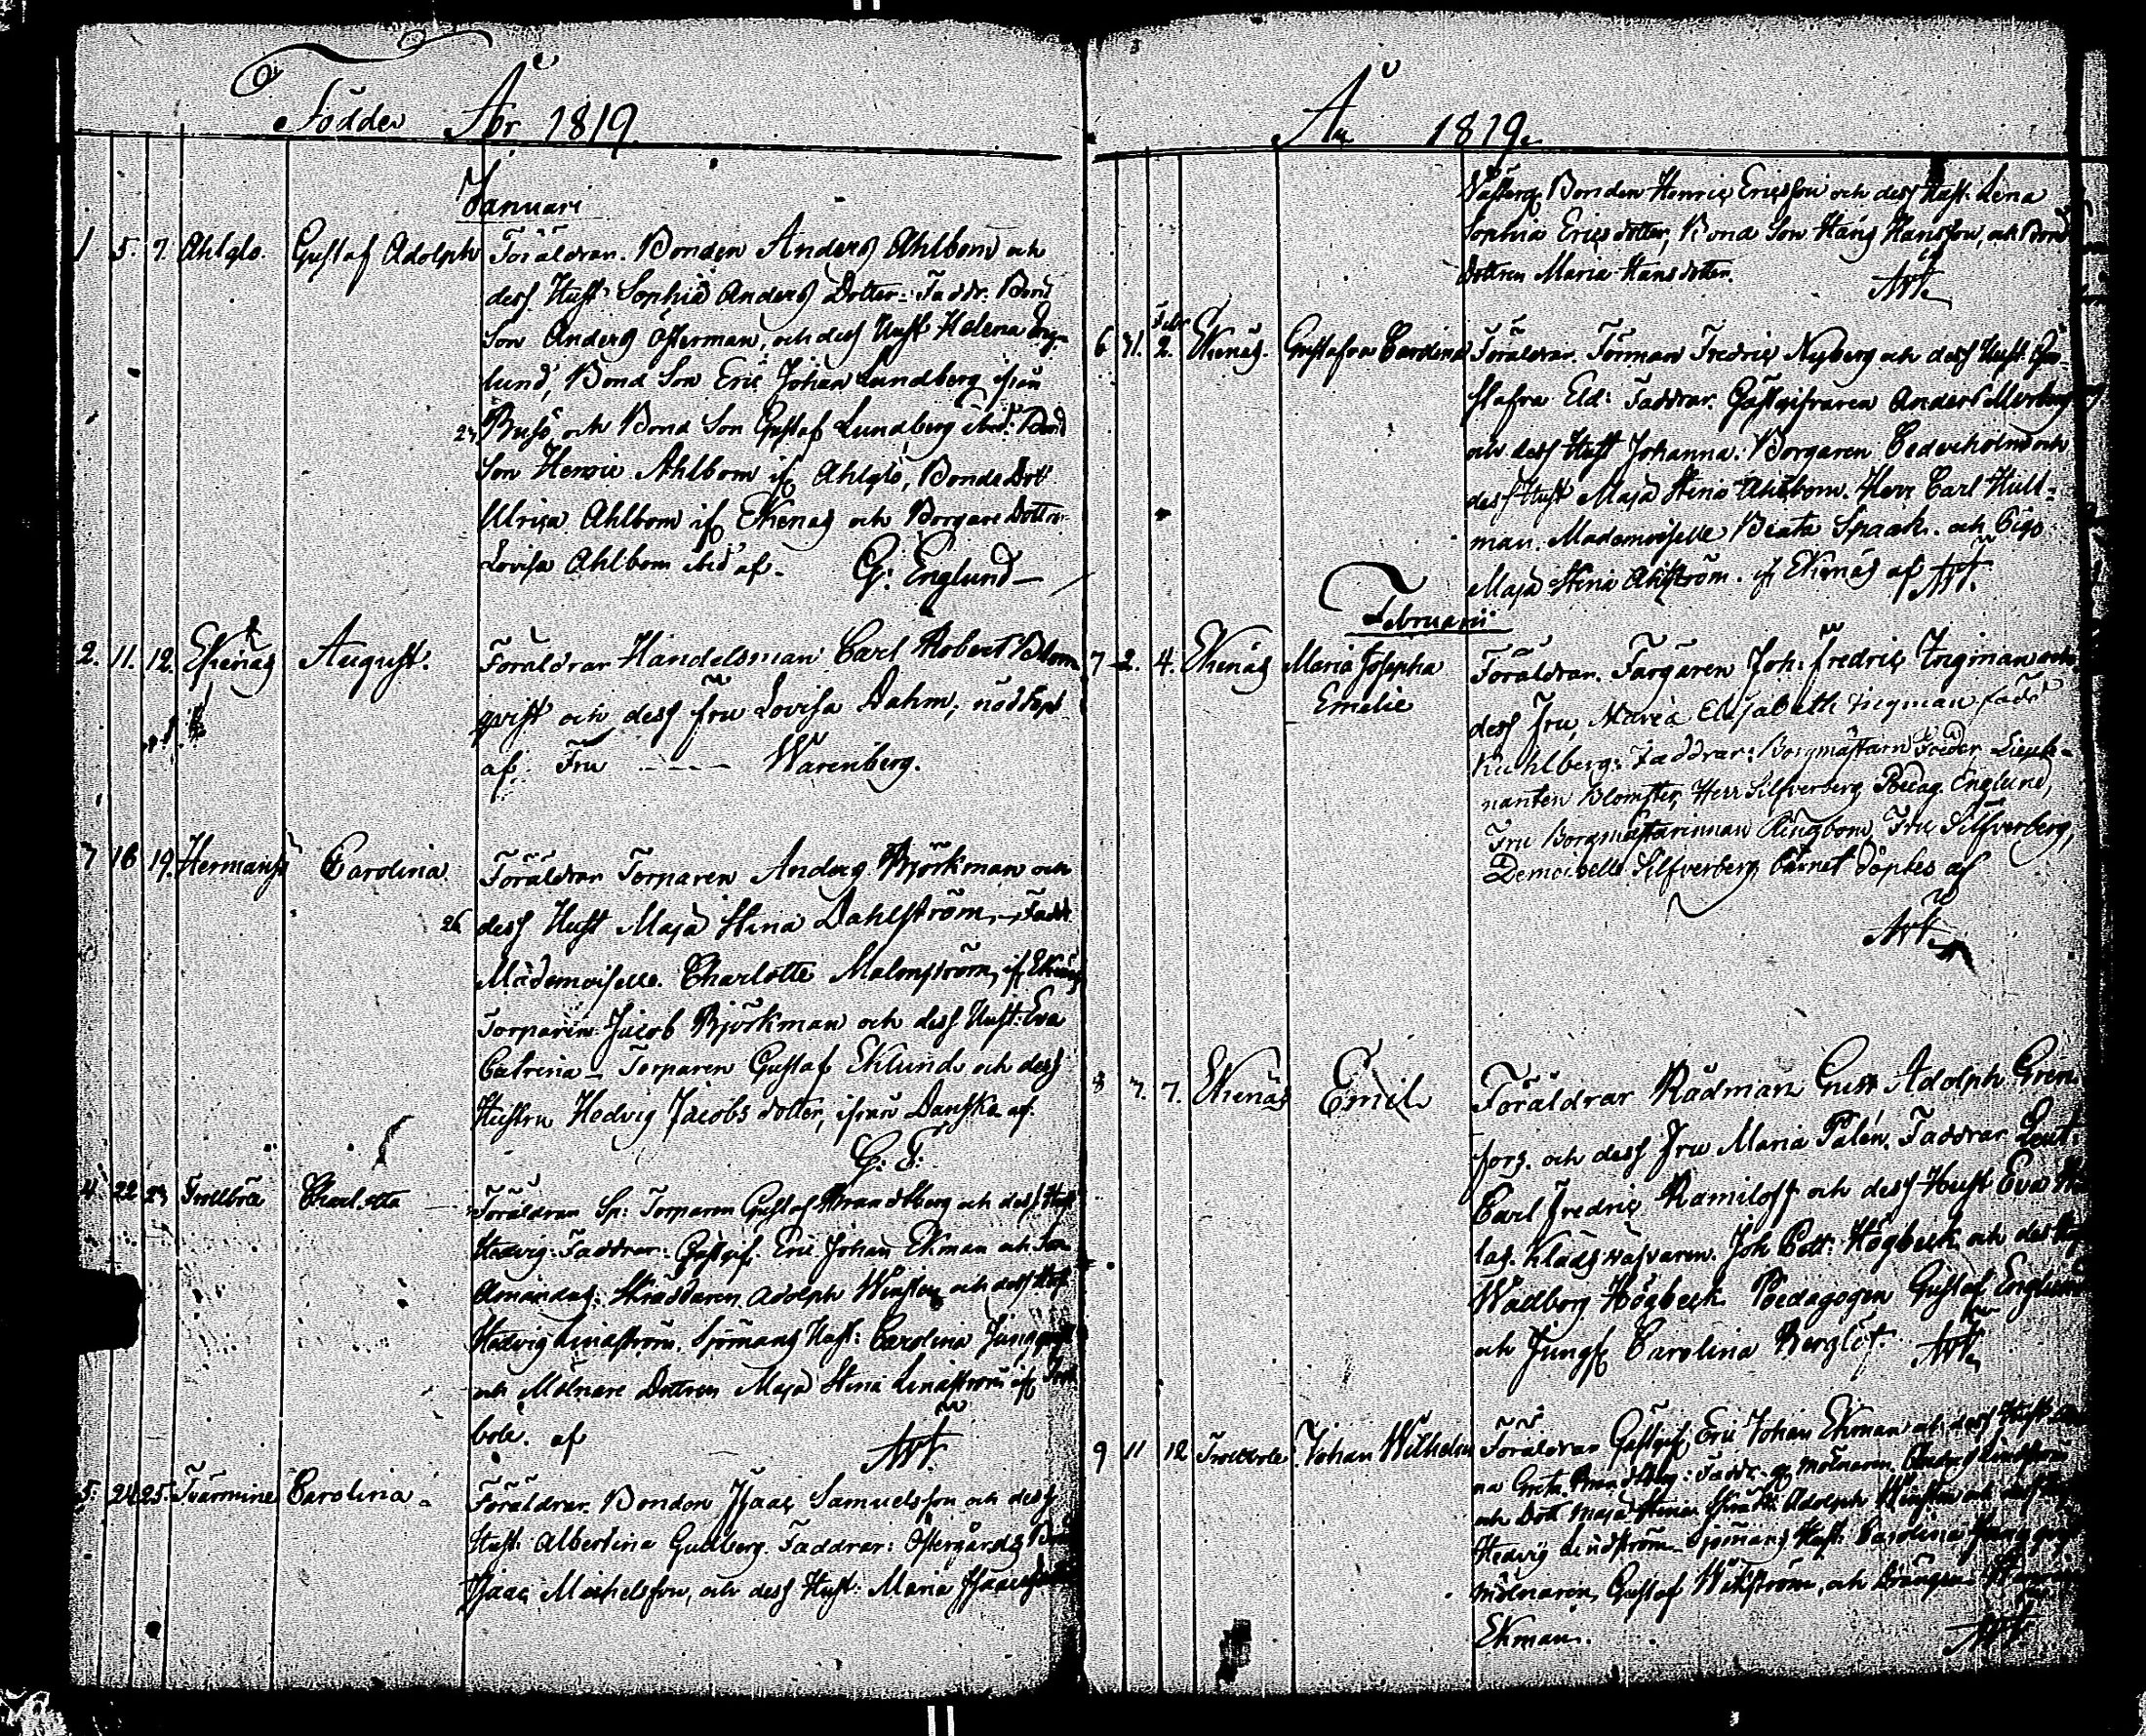 Födde År 1819
Januari
1 5. 7. Ahlglo. Gustaf Adolph Föräldrar. Bonden Anders Ahlbom och
dess Hust. Sophia Anders Dotter. Faddr. Bond
Son Anders Österman, och dess Hust Helena Eng-
lund, Bond Son Eric Johan Lundberg ifrån
Busö och Bond Son Gustaf Lundberg ibid: Bond
Son Henric Ahlbom if. Ahlglo, Bonde Dot
Ulrica Ahlbom if. Ekenäs och Borgare Dottr
Lovisa Ahlbom ibid af. G: Englund
2. 11. 12. Ekenäs August. Föräldrar Handelsman Carl Robert Blom
qvist och dess fru Lovisa Dahm, nöddöpt
af Fru Warenberg.
16 19. Hermans Carolina Föräldrar Torparen Anders Björkman och
26 dess Hust Maja Stina Dahlström, Faddr
Mademoiselle Charlotte Malmström, if. Ekenäs
Torparen Jacob Björkman och dess Hust: Eva
Catrina Torparen Gustaf Eklund och dess
Hustru Hedvig Jacobs dotter, ifrån Danska af
G: E:
4 22 23 Trollböle Charlotta Föräldrar Sp: Torparen Gustaf Brandtberg och dess Hust
Hedvig. Faddrar: Gästgif. Eric Johan Ekman och
Skräddaren Adolph och dess Hust
Hedvig Lindström. Sjömans Hust: Carolina
och Mölnare Dottren Maja Stina Lindström if Troll
bole. af
5. 24 25. Tvärmine Carolina Föräldrar. Bonden Isaac Samuelsson och dess
Hust: Albertina Gullberg. Faddrar: Östergårds Bond
Isaac Michelsson, och dess Hust: Maria
År 1819.
Bonden Henric Ericsson och dess Hust. Lena
Sophia Ericsdotter, Bond Son Hans Hansson, och Bond
Dottren Maria Hansdotter.
Febr
6 31. 2. Ekenäs. Gustafva Carolina Föräldrar. Förman Fredric Nyberg och dess Hust. Gu
stafva Eld: Faddrar. Gästgifvaren Anders
och dess Hust Johanna. Borgaren Cederholm och
dess Hust Maja Stina Ahlbom. Herr Carl Hult-
man. Mademoiselle Beata Spaak. och Pigo
Maja Stina Ahlström. if Ekenäs af
Februarii
7 2. 4. Ekenäs Maria Josepha Föräldrar. Färgaren Joh: Fredric Tregman och
Emelie dess Fru, Maria Elisabeth Tregman född
Kuhlberg: Faddrar: Borgmästarn Lieute-
nanten Blomster, Herr Silfverberg Pædag. Englund,
Fru Borgmästarinnan Ringbom, Fru Silfverberg,
Demoiselle Silfverberg Barnet döptes af
8 7. 7. Ekenäs Emil Föräldrar Rådman Gust Adolph Gren
fors. och dess Fru Maria Palén. Faddrar Leut.
Carl Fredric Ramiloff och dess Hust Eva
Joh Pett: Högbeck och dess
Wadborg Högbeck. Poedagogen Gustaf Englund
och Jungf Carolina Berglöf.
9 11 12 Trollbole Johan Wilhelm Föräldrar Gästgif. Eric Johan Ekman och dess Hust
na Greta Brandtberg: Faddr. Mölnaren Lindström
och Dott Maja Stina Adolph och dess
Hedvig Lindström. Sjömans Hust. Carolina
Mölnaren Gustaf Wikström, och Drängen
Ekman.